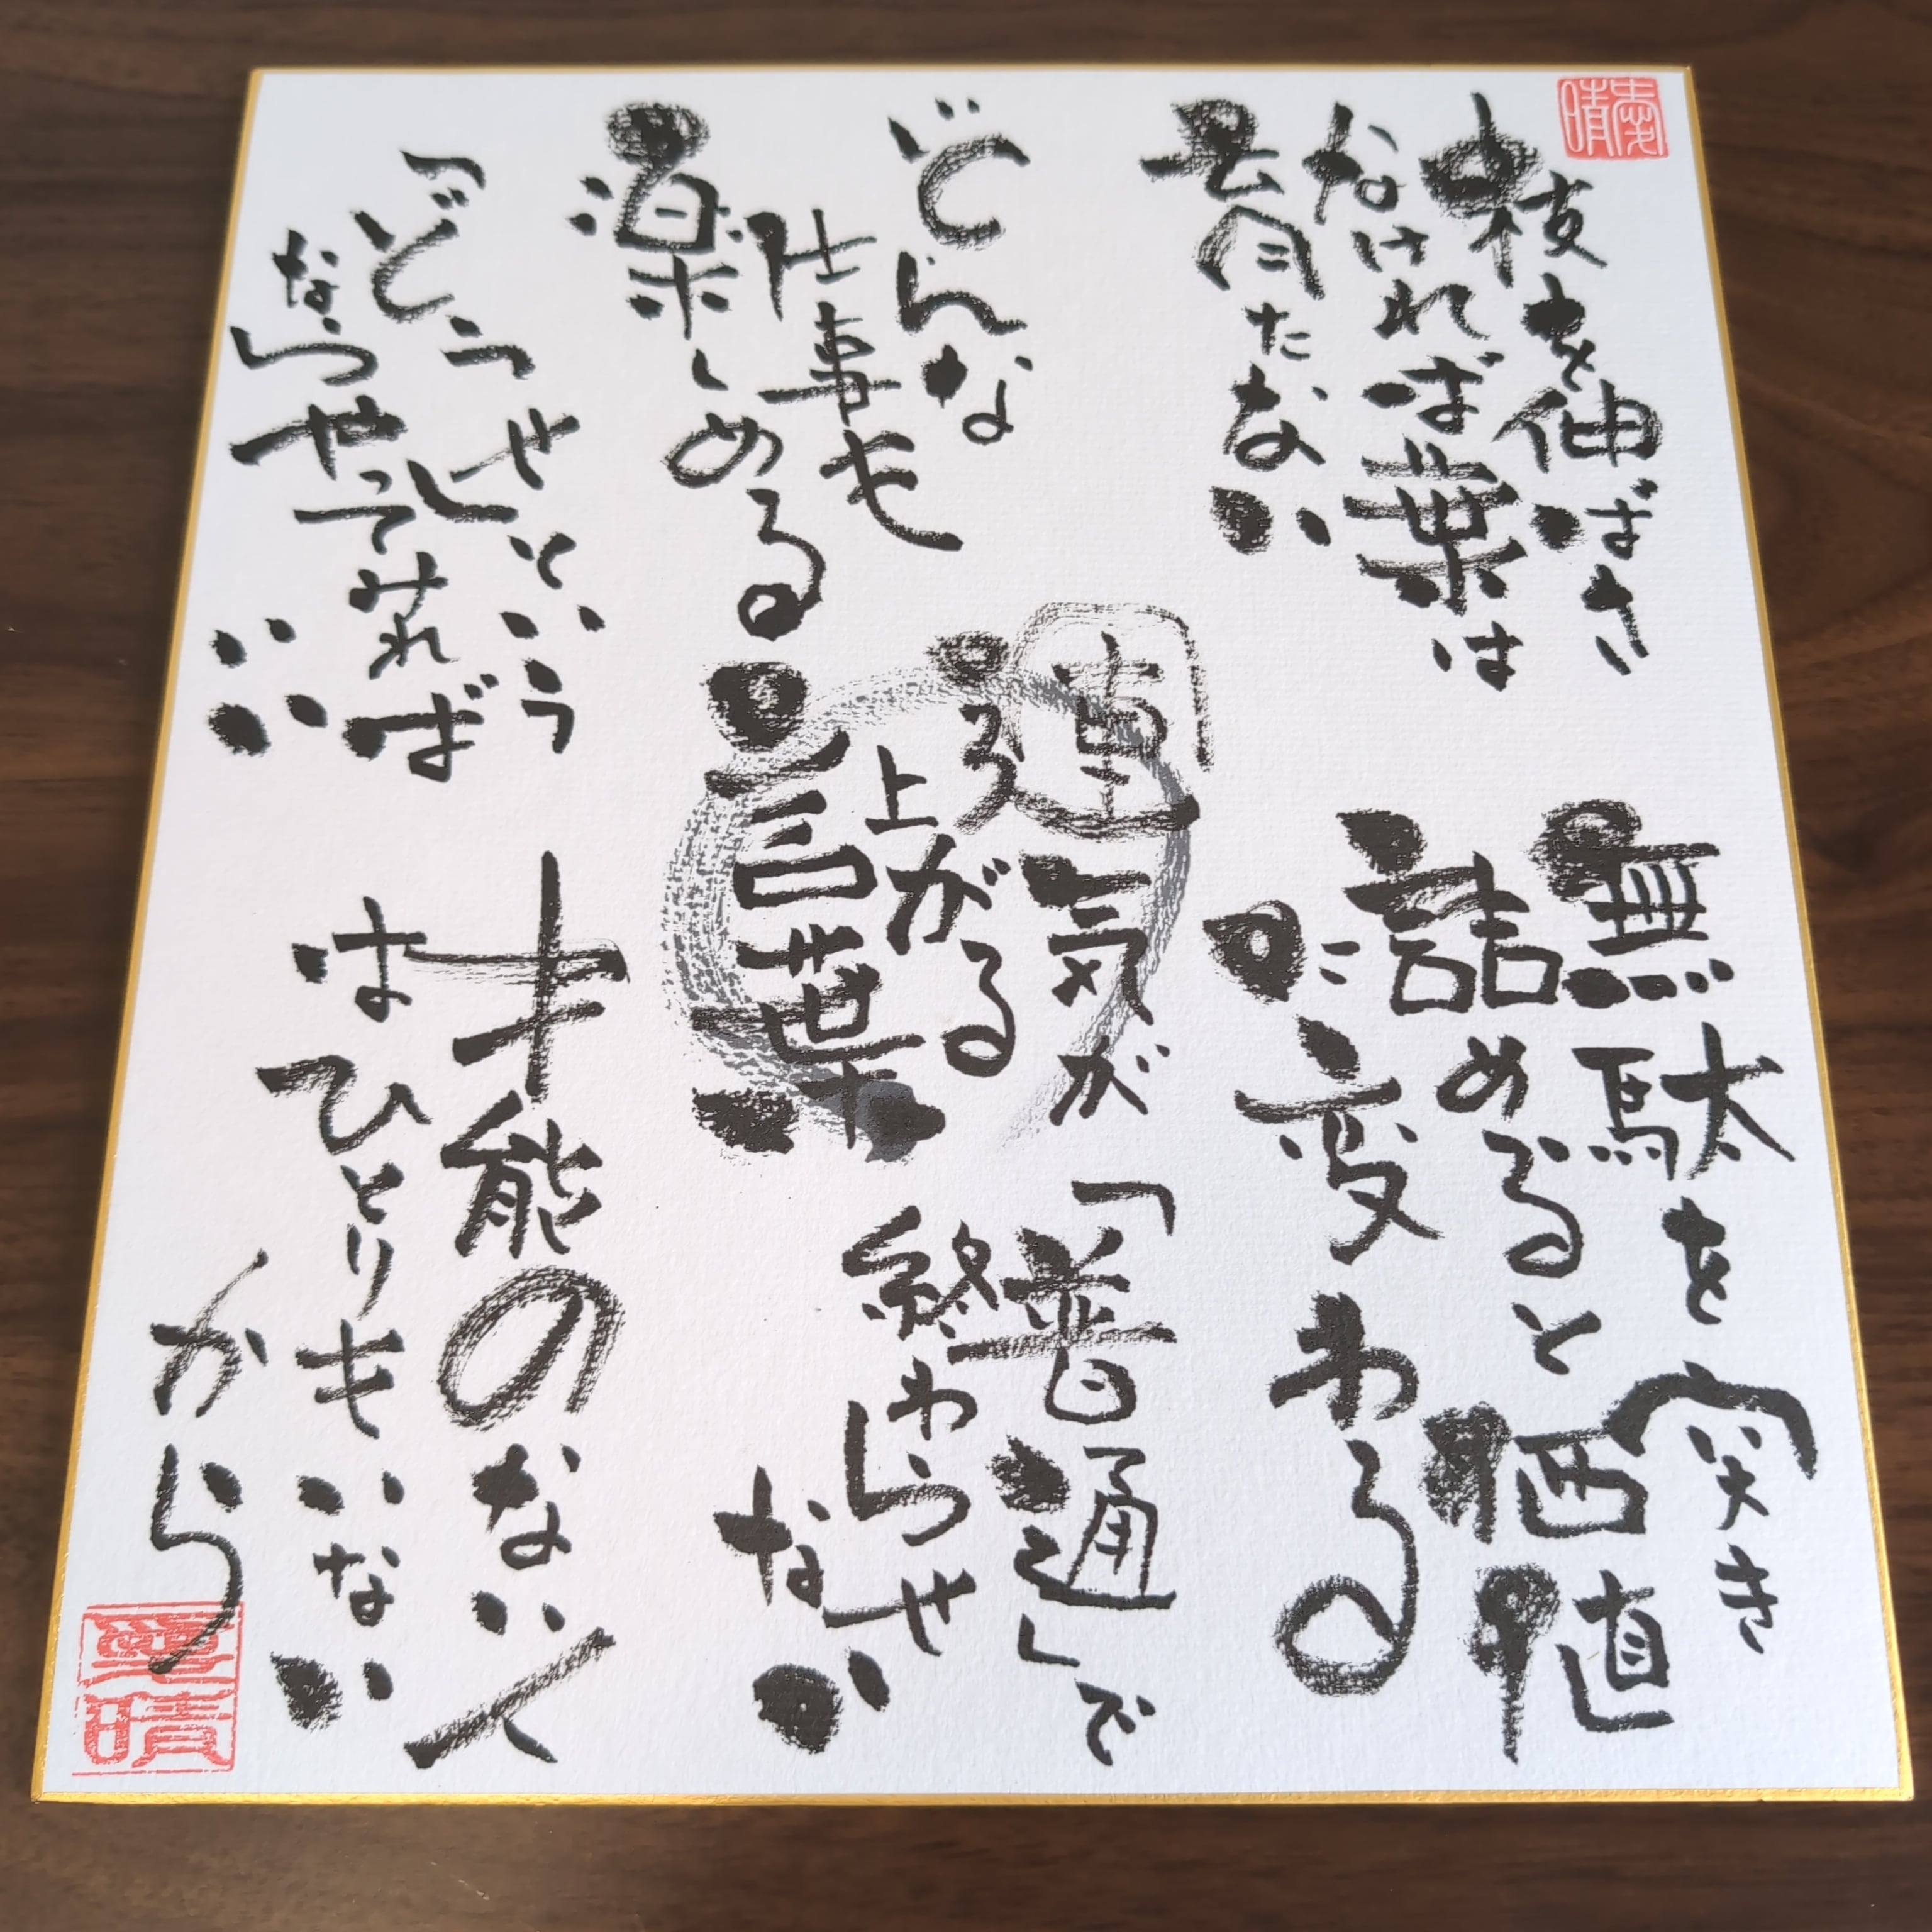 枝を伸ばさ
なければ葉は
育たない
無駄を突き
詰めると価値
に変わる
どんな
仕事も
楽しめる
運気が
上がる
言葉
「普通」で
終わらせ
ない
「どうせ」という
ならやってみれば
いい
才能のない人
はひとりもいない
から